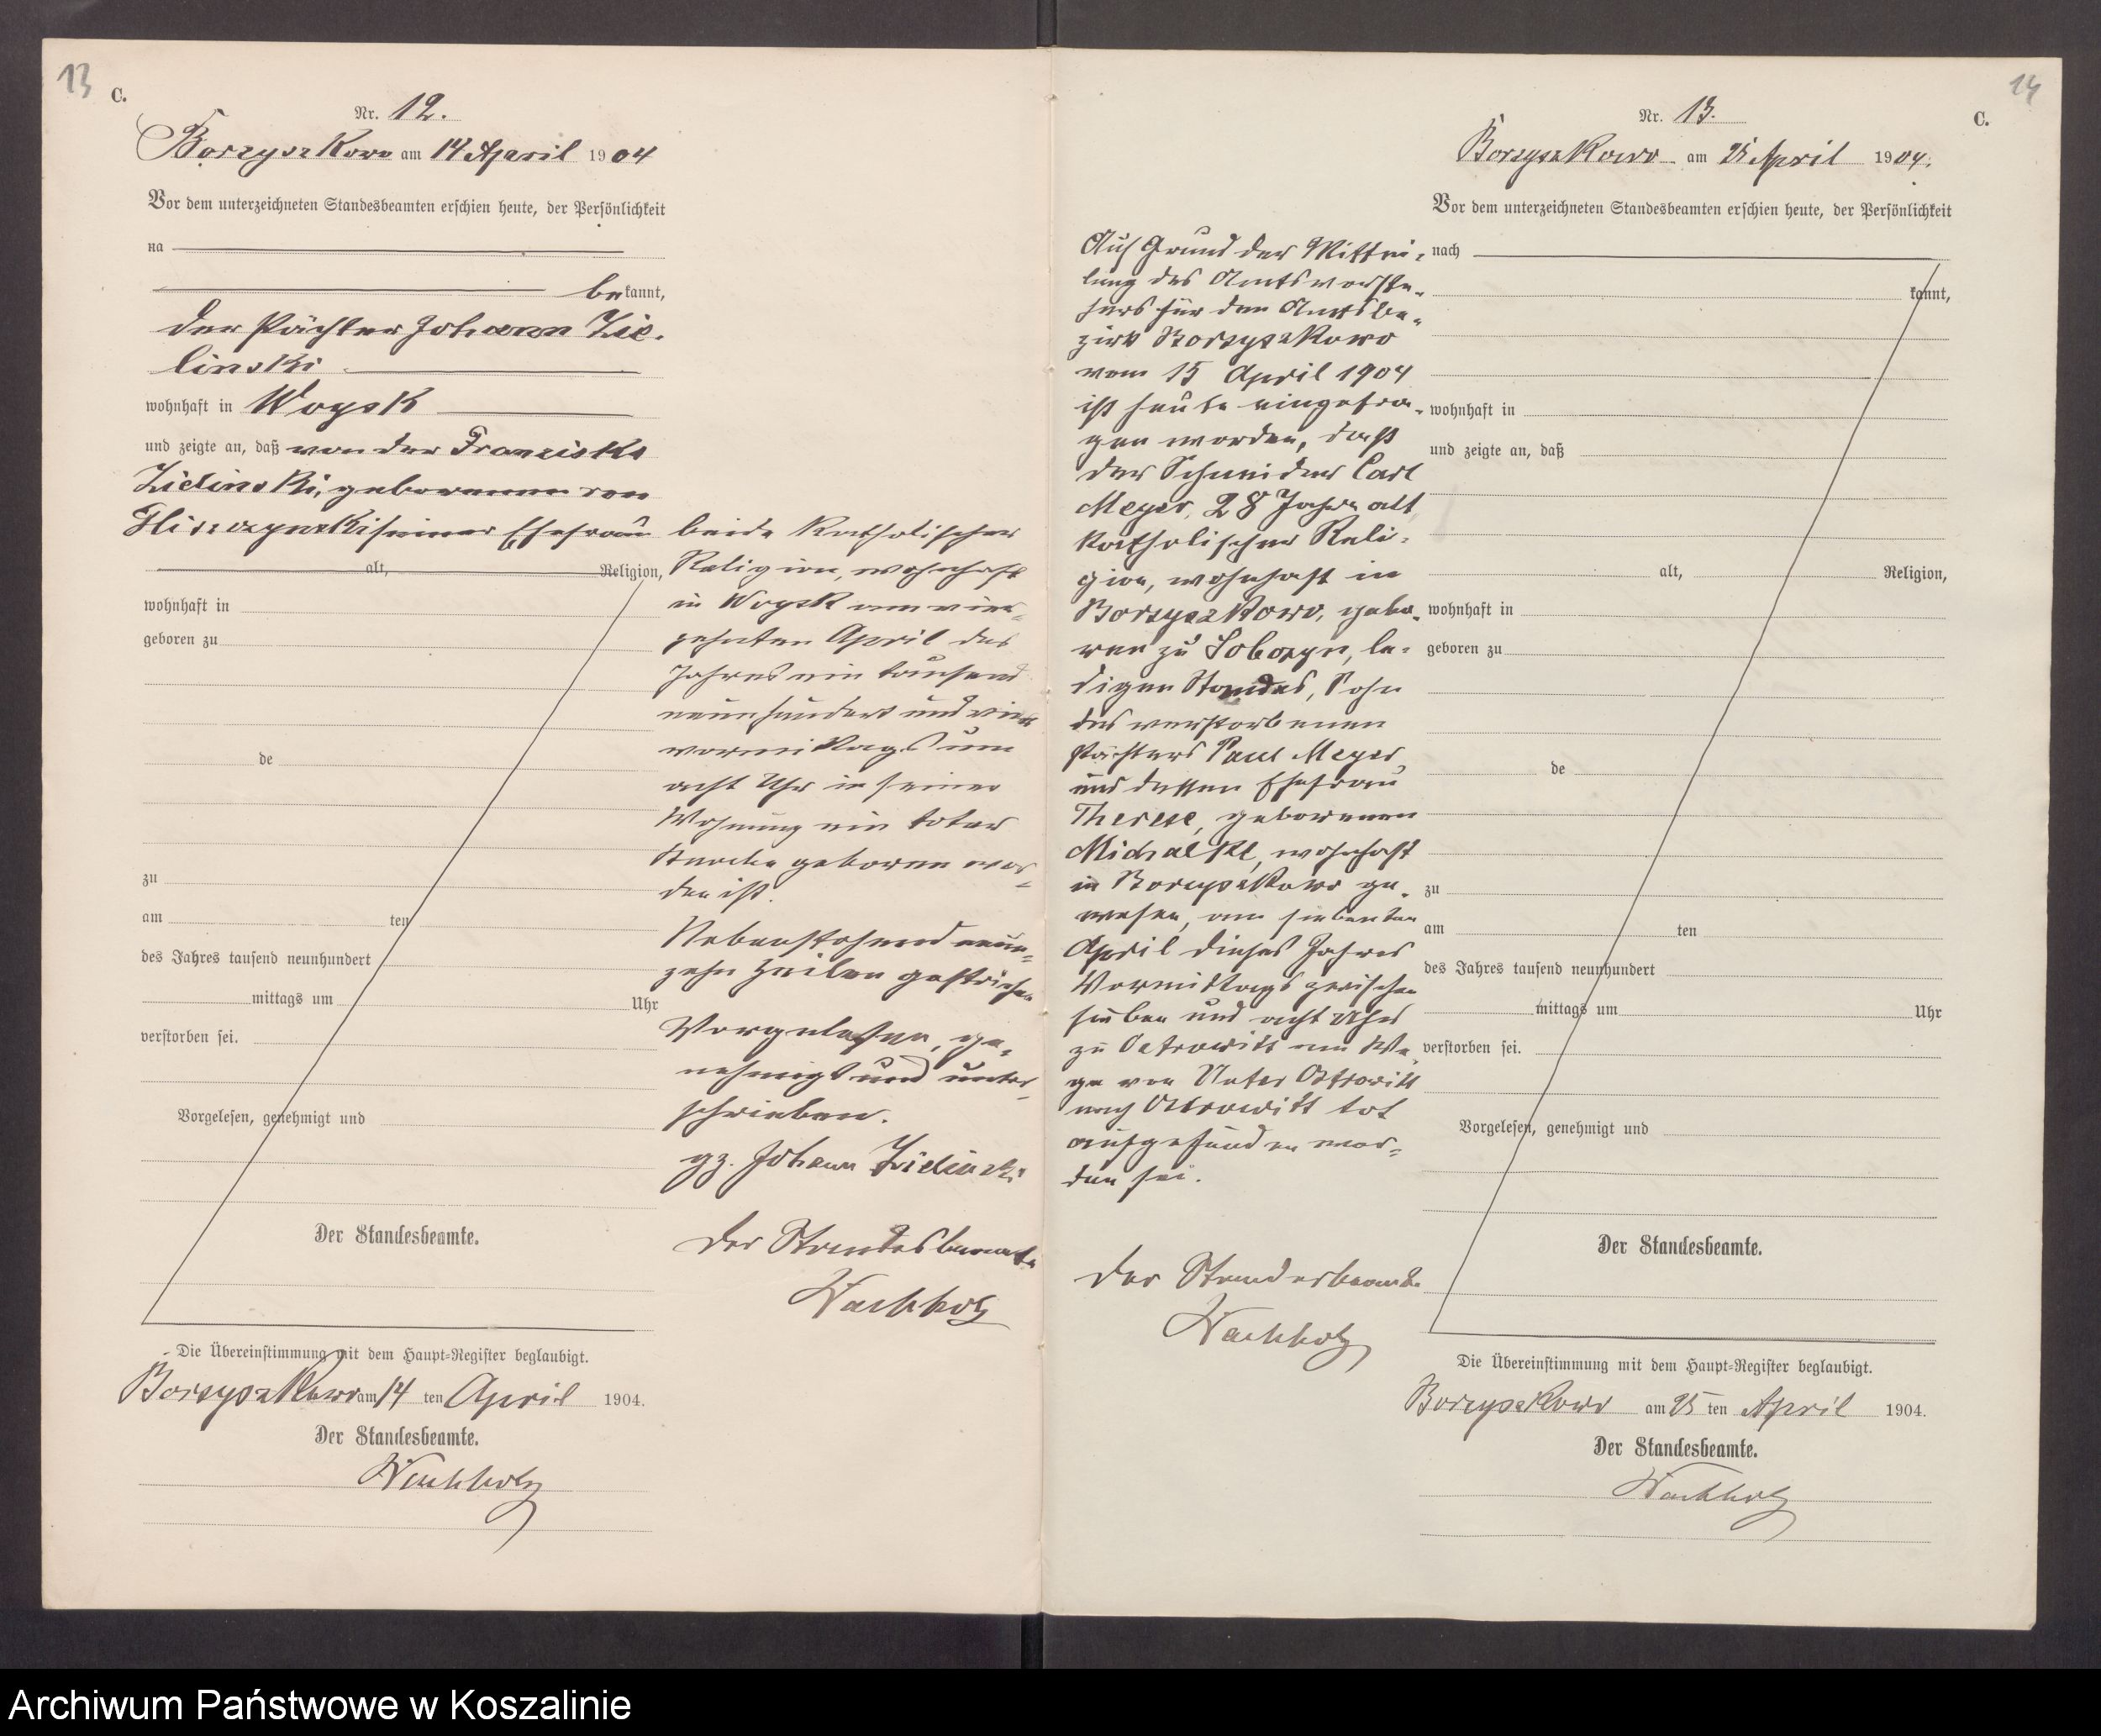 13
C.
Nr. 12.
Borzyszkowo am 14 April 1904
Vor dem unterzeichneten Standesbeamten erschien heute, der Persönlichkeit
na
bekannt,
der Pächter Johann Zie-
linski
wohnhaft in Woysk
und zeigte an, daß von der Franziska
Zielinski, geborenen von
seiner Ehefrau
alt, Religion,
wohnhaft in
geboren zu
de
zu
am ten
des Jahres tausend neunhundert
mittags um Uhr
verstorben sei.
Vorgelesen, genehmigt und
Der Standesbeamte.
beide katholischer
Religion, wohnhaft
in Woysk am vier-
zehnten April des
Jahres ein tausend
neunhundert und vier
vormittags um
acht Uhr in seiner
Wohnung ein toter
Knabe geboren wor-
den ist.
Nebenstehend neun-
zehn Zeilen gestrichen
Vorgelesen, ge-
nehmigt und unter-
schrieben.
gz. Johann Zielinski
Der Standesbeamte
Wachholz
Die Übereinstimmung mit dem Haupt-Register beglaubigt.
Borzyszkowo am 14 ten April 1904.
Der Standesbeamte.
Wachholz
14
C.
Nr. 13.
Borzyszkowo am 25 April 1904.
Vor dem unterzeichneten Standesbeamten erschien heute, der Persönlichkeit
nach
kannt,
wohnhaft in
und zeigte an, daß
alt, Religion,
wohnhaft in
geboren zu
de
zu
am ten
des Jahres tausend neunhundert
mittags um Uhr
verstorben sei.
Vorgelesen, genehmigt und
Der Standesbeamte.
Auf Grund der Mittei-
lung des Amtsvorste-
hers für den Amtsbe-
zirk Borzyszkowo
vom 15 April 1904
ist heute eingetra-
gen worden, daß
der Schneider Carl
Meyer, 28 Jahre alt
katholischer Reli-
gion, wohnhaft in
Borzyszkowo, gebo-
ren zu Soboczyn, le-
digen Standes, Sohn
des verstorbenen
Pächters Paul Meyer
und dessen Ehefrau
Therese, geborenen
Michalke, wohnhaft
in Borzyszkowo ge-
wesen, am siebenten
April dieses Jahres
Vormittags zwischen
sieben und acht Uhr
zu Ostrowitt am We-
ge von Unter Ostrowitt
nach Ostrowitt tot
aufgefunden wor-
den sei.
Der Standesbeamte
Wachholz
Die Übereinstimmung mit dem Haupt-Register beglaubigt.
Borzyszkowo am 25 ten April 1904.
Der Standesbeamte.
Wachholz
Archiwum Państwowe w Koszalinie